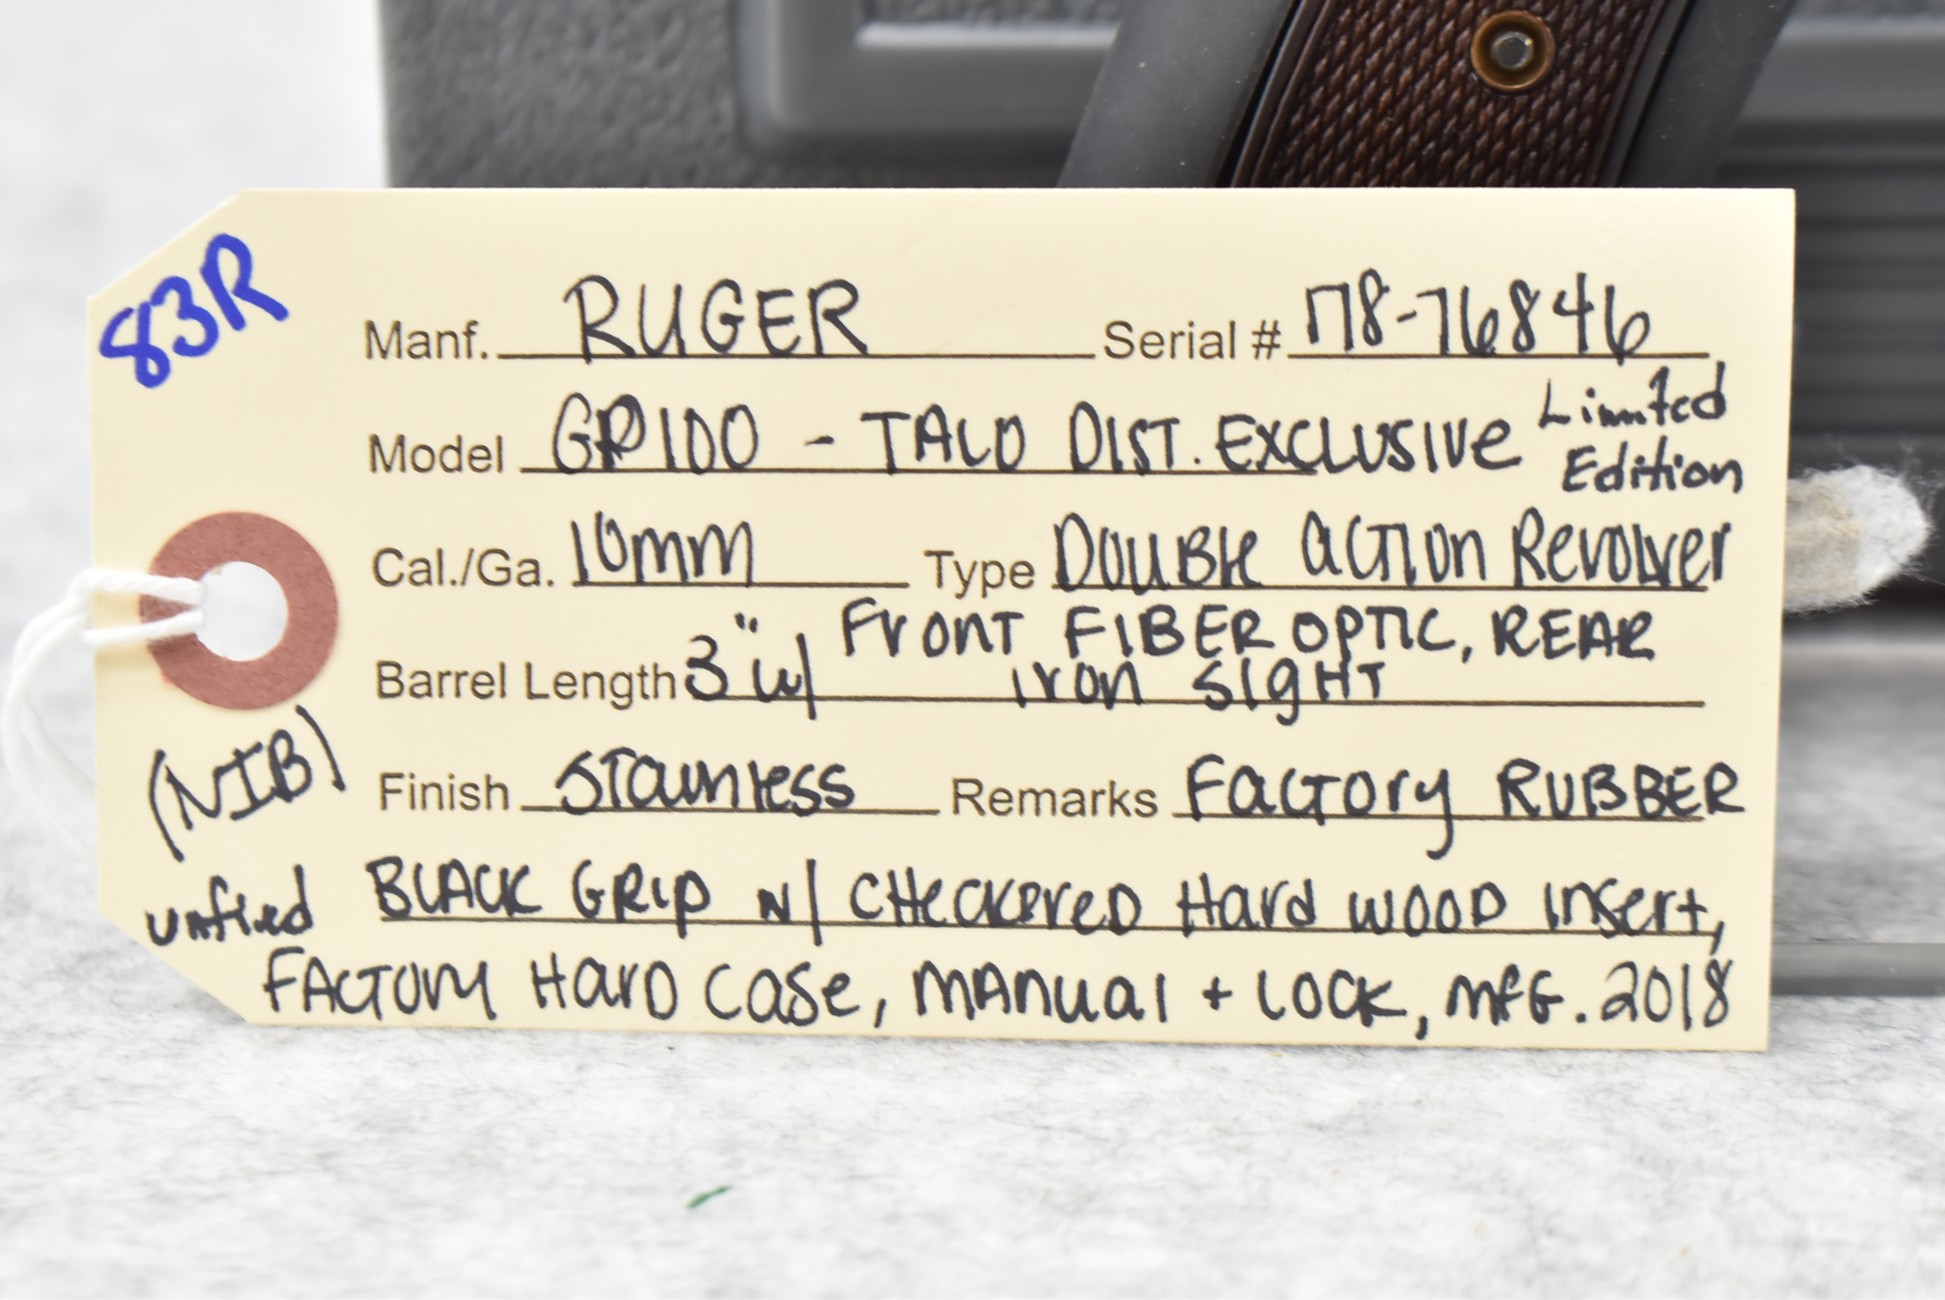 83R
Manf. RUGER Serial # 178-76846
Model GP100 - TALO DIST. EXCLUSIVE Limited Edition
Cal./Ga. 10mm Type Double Action Revolver
Barrel Length 3" w/ Front Fiber Optic, Rear
iron sight
(NIB) Finish Stainless Remarks Factory RUBBER
unfired BLACK GRIP w/ CHeckered Hard wood insert,
Factory Hard Case, manual + Lock, mfG. 2018